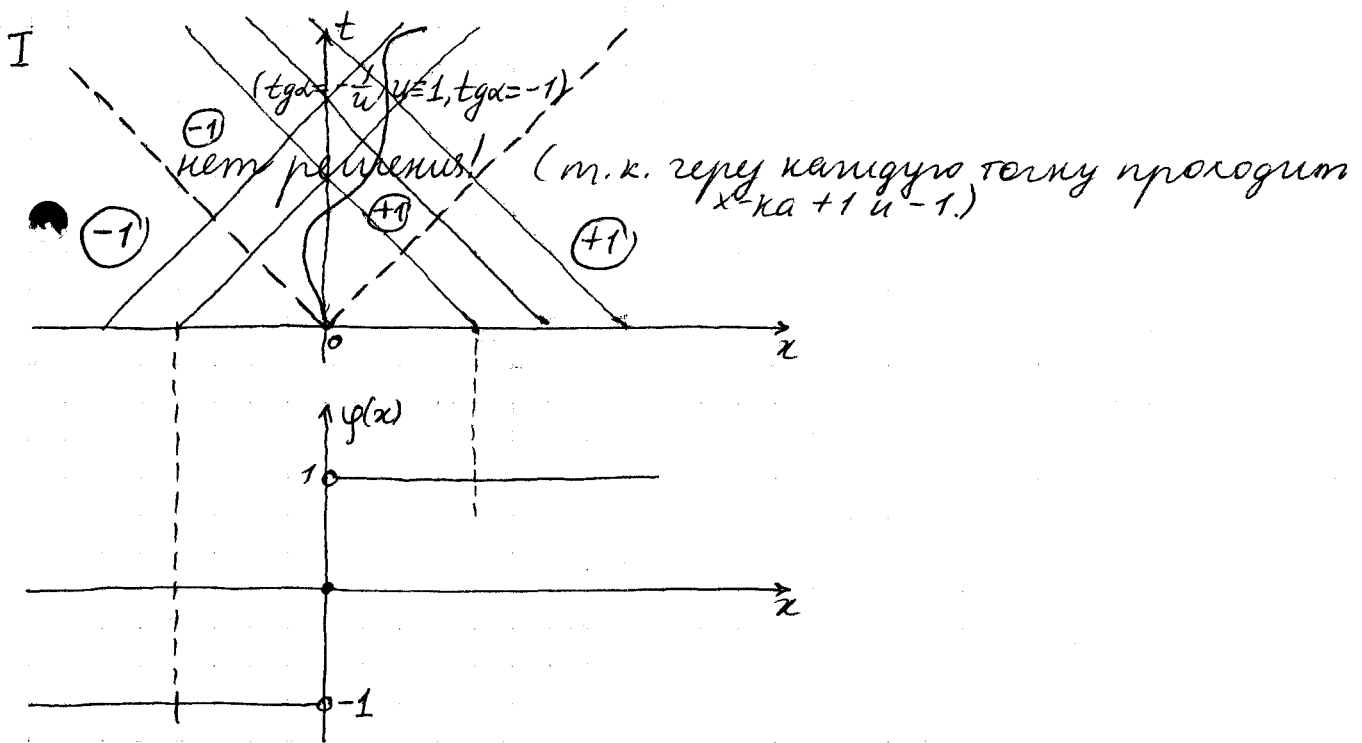 I
t
(tgα = -1/u) u≡1, tgα=-1)
-1
нет решения! (т.к. через каждую точку проходит
х-ка +1 и -1.)
-1
+1
+1
0
x
φ(x)
1
x
-1